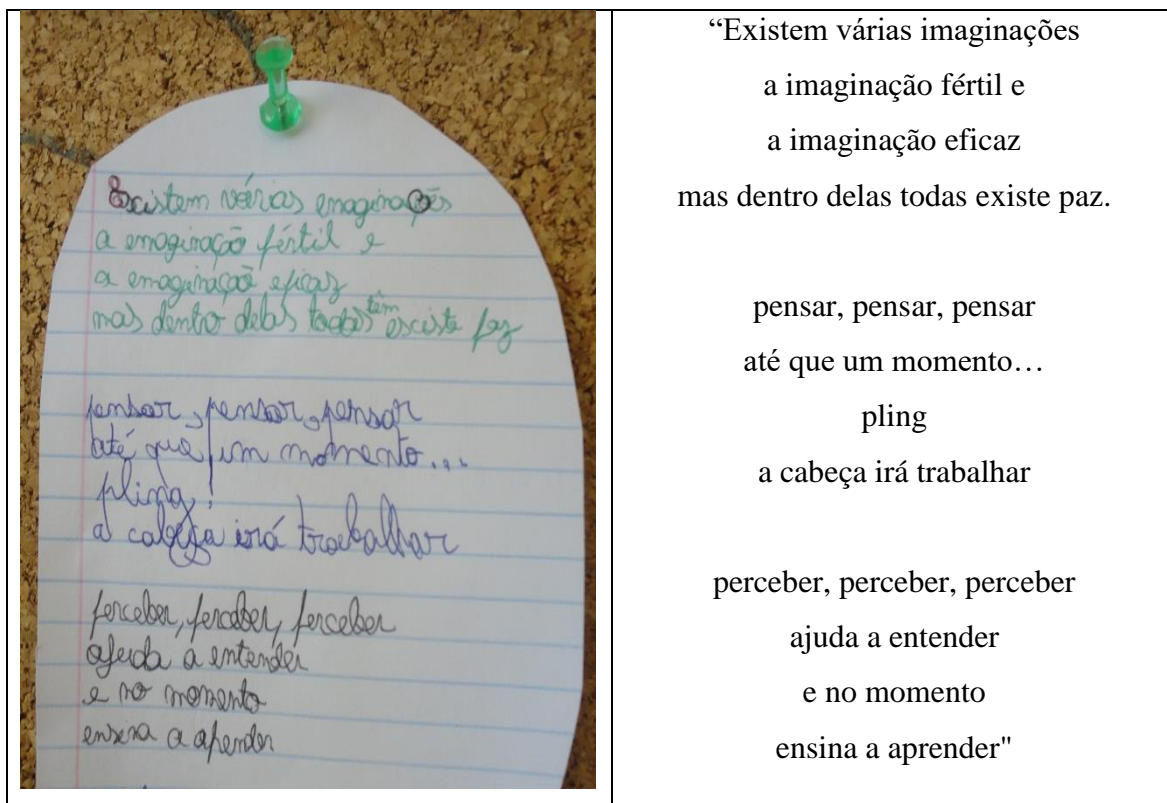 Escistem várias emaginações
a emaginação fértil e
a emaginação eficaz
mas dentro delas todas têm esciste paz
pensar, pensar, pensar
até que um momento...
pling!
a cabeça irá trabalhar
perceber, perceber, perceber
ajuda a entender
e no momento
ensina a apender
“Existem várias imaginações
a imaginação fértil e
a imaginação eficaz
mas dentro delas todas existe paz.
pensar, pensar, pensar
até que um momento…
pling
a cabeça irá trabalhar
perceber, perceber, perceber
ajuda a entender
e no momento
ensina a aprender"